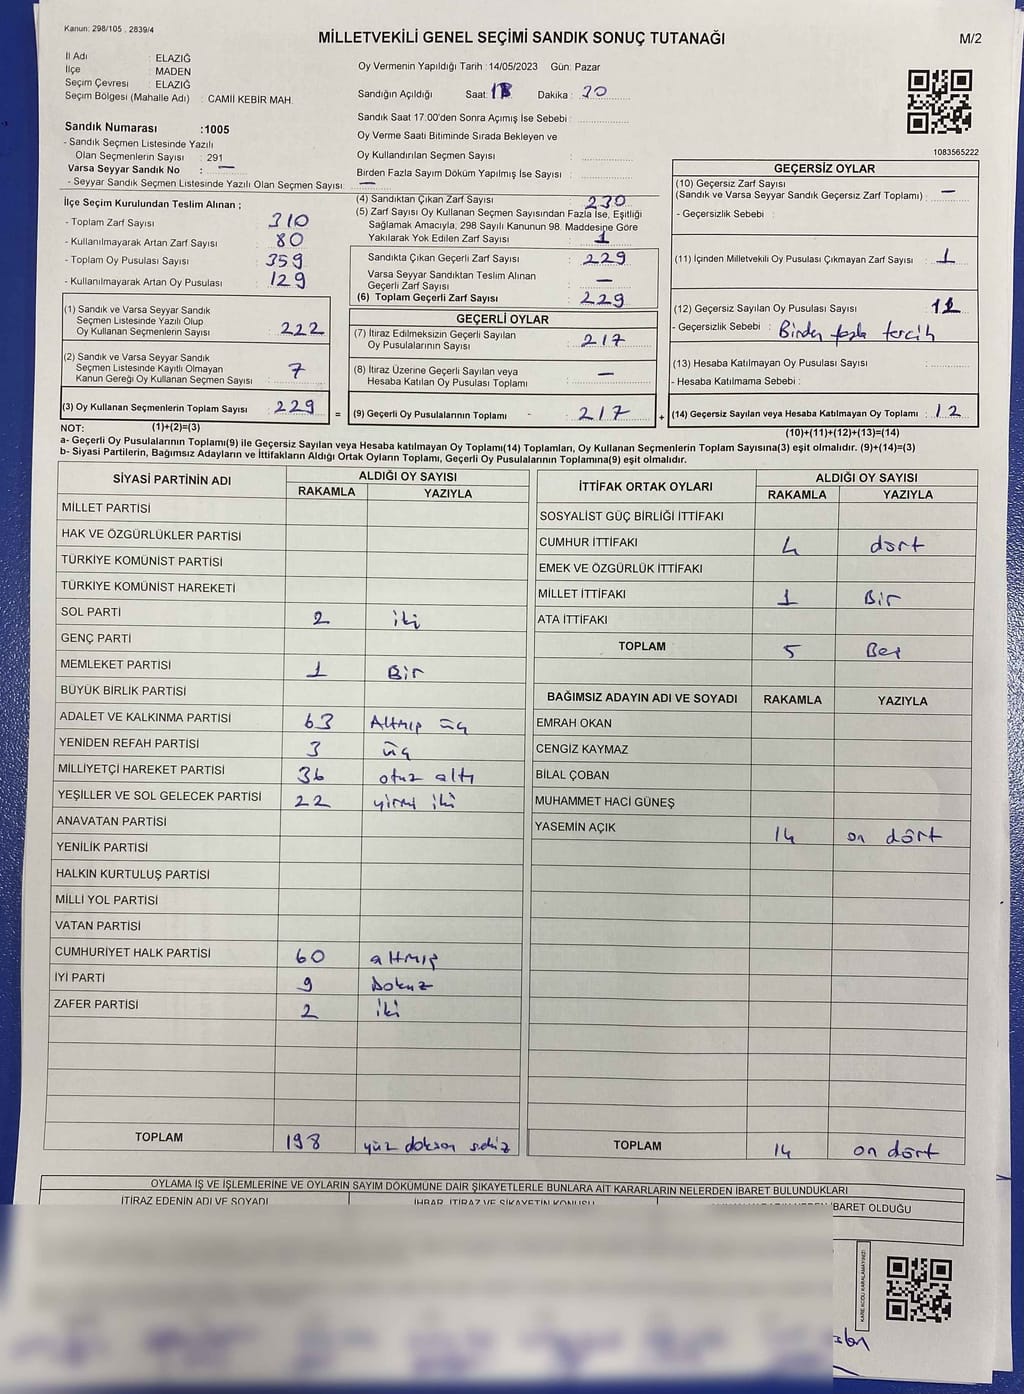 Kanun: 298/105 , 2839/4
MİLLETVEKİLİ GENEL SEÇİMİ SANDIK SONUÇ TUTANAĞI
M/2
İl Adı : ELAZIĞ
İlçe : MADEN
Seçim Çevresi : ELAZIĞ
Seçim Bölgesi (Mahalle Adı) : CAMİİ KEBİR MAH.
Sandık Numarası :1005
- Sandık Seçmen Listesinde Yazılı
Olan Seçmenlerin Sayısı : 291
Varsa Seyyar Sandık No : —
- Seyyar Sandık Seçmen Listesinde Yazılı Olan Seçmen Sayısı: —
Oy Vermenin Yapıldığı Tarih : 14/05/2023 Gün: Pazar
Sandığın Açıldığı Saat: Dakika : 20
Sandık Saat 17.00'den Sonra Açımış İse Sebebi :
Oy Verme Saati Bitiminde Sırada Bekleyen ve
Oy Kullandırılan Seçmen Sayısı :
Birden Fazla Sayım Döküm Yapılmış İse Sayısı :
1083565222
İlçe Seçim Kurulundan Teslim Alınan ;
- Toplam Zarf Sayısı : 310
- Kullanılmayarak Artan Zarf Sayısı : 80
- Toplam Oy Pusulası Sayısı : 359
- Kullanılmayarak Artan Oy Pusulası : 129
(1) Sandık ve Varsa Seyyar Sandık
Seçmen Listesinde Yazılı Olup
Oy Kullanan Seçmenlerin Sayısı : 222
(2) Sandık ve Varsa Seyyar Sandık
Seçmen Listesinde Kayıtlı Olmayan
Kanun Gereği Oy Kullanan Seçmen Sayısı : 7
(3) Oy Kullanan Seçmenlerin Toplam Sayısı : 229 =
(4) Sandıktan Çıkan Zarf Sayısı : 230
(5) Zarf Sayısı Oy Kullanan Seçmen Sayısından Fazla İse, Eşitliği
Sağlamak Amacıyla, 298 Sayılı Kanunun 98. Maddesine Göre
Yakılarak Yok Edilen Zarf Sayısı : 1
Sandıkta Çıkan Geçerli Zarf Sayısı : 229
Varsa Seyyar Sandıktan Teslim Alınan
Geçerli Zarf Sayısı : —
(6) Toplam Geçerli Zarf Sayısı : 229
GEÇERLİ OYLAR
(7) İtiraz Edilmeksizin Geçerli Sayılan
Oy Pusulalarının Sayısı : 217
(8) İtiraz Üzerine Geçerli Sayılan veya
Hesaba Katılan Oy Pusulası Toplamı : —
(9) Geçerli Oy Pusulalarının Toplamı - : 217 +
GEÇERSİZ OYLAR
(10) Geçersiz Zarf Sayısı
(Sandık ve Varsa Seyyar Sandık Geçersiz Zarf Toplamı) : —
- Geçersizlik Sebebi :
(11) İçinden Milletvekili Oy Pusulası Çıkmayan Zarf Sayısı : 1
(12) Geçersiz Sayılan Oy Pusulası Sayısı : 11
- Geçersizlik Sebebi : Birden fazla tercih
(13) Hesaba Katılmayan Oy Pusulası Sayısı :
- Hesaba Katılmama Sebebi :
(14) Geçersiz Sayılan veya Hesaba Katılmayan Oy Toplamı : 12
NOT: (1)+(2)=(3)
(10)+(11)+(12)+(13)=(14)
a- Geçerli Oy Pusulalarının Toplamı(9) ile Geçersiz Sayılan veya Hesaba katılmayan Oy Toplamı(14) Toplamları, Oy Kullanan Seçmenlerin Toplam Sayısına(3) eşit olmalıdır. (9)+(14)=(3)
b- Siyasi Partilerin, Bağımsız Adayların ve İttifakların Aldığı Ortak Oyların Toplamı, Geçerli Oy Pusulalarının Toplamına(9) eşit olmalıdır.
SİYASİ PARTİNİN ADI ALDIĞI OY SAYISI
RAKAMLA YAZIYLA
MİLLET PARTİSİ
HAK VE ÖZGÜRLÜKLER PARTİSİ
TÜRKİYE KOMÜNİST PARTİSİ
TÜRKİYE KOMÜNİST HAREKETİ
SOL PARTİ 2 iki
GENÇ PARTİ
MEMLEKET PARTİSİ 1 Bir
BÜYÜK BİRLİK PARTİSİ
ADALET VE KALKINMA PARTİSİ 63 Altmış üç
YENİDEN REFAH PARTİSİ 3 üç
MİLLİYETÇİ HAREKET PARTİSİ 36 otuz altı
YEŞİLLER VE SOL GELECEK PARTİSİ 22 yirmi iki
ANAVATAN PARTİSİ
YENİLİK PARTİSİ
HALKIN KURTULUŞ PARTİSİ
MİLLİ YOL PARTİSİ
VATAN PARTİSİ
CUMHURİYET HALK PARTİSİ 60 altmış
İYİ PARTİ 9 Dokuz
ZAFER PARTİSİ 2 iki
TOPLAM 198 yüz doksan sekiz
İTTİFAK ORTAK OYLARI ALDIĞI OY SAYISI
RAKAMLA YAZIYLA
SOSYALİST GÜÇ BİRLİĞİ İTTİFAKI
CUMHUR İTTİFAKI 4 dört
EMEK VE ÖZGÜRLÜK İTTİFAKI
MİLLET İTTİFAKI 1 Bir
ATA İTTİFAKI
TOPLAM 5 Beş
BAĞIMSIZ ADAYIN ADI VE SOYADI RAKAMLA YAZIYLA
EMRAH OKAN
CENGİZ KAYMAZ
BİLAL ÇOBAN
MUHAMMET HACİ GÜNEŞ
YASEMİN AÇIK 14 on dört
TOPLAM 14 on dört
OYLAMA İŞ VE İŞLEMLERİNE VE OYLARIN SAYIM DÖKÜMÜNE DAİR ŞİKAYETLERLE BUNLARA AİT KARARLARIN NELERDEN İBARET BULUNDUKLARI
İTİRAZ EDENİN ADI VE SOYADI İHBAR, İTİRAZ VE ŞİKAYETİN KONUSU İBARET OLDUĞU
KARE KODU KARALAMAYINIZ!